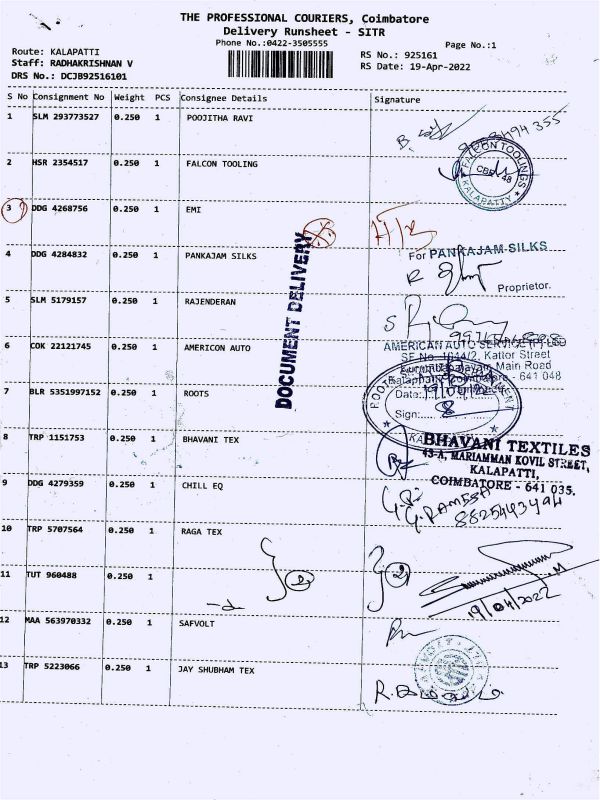 THE PROFESSIONAL COURIERS, Coimbatore
Delivery Runsheet - SITR
Phone No.:0422-3505555
Page No.:1
Route: KALAPATTI
Staff: RADHAKRISHNAN V
DRS No.: DCJB92516101
RS No.: 925161
RS Date: 19-Apr-2022
S No Consignment No Weight PCS Consignee Details Signature
1 SLM 293773527 0.250 1 POOJITHA RAVI
2 HSR 2354517 0.250 1 FALCON TOOLING
FALCON TOOLINGS
CBE 48
KALAPATTY
3 DDG 4268756 0.250 1 EMI
4 DDG 4284832 0.250 1 PANKAJAM SILKS
For PANKAJAM SILKS
Proprietor.
DOCUMENT DELIVERY
5 SLM 5179157 0.250 1 RAJENDERAN
6 COK 22121745 0.250 1 AMERICON AUTO
AMERICAN AUTO SERVICE (P) LTD
SF No. 164/2, Kattor Street
Main Road
641 048
7 BLR 5351997152 0.250 1 ROOTS
Date:
Sign:
8 TRP 1151753 0.250 1 BHAVANI TEX
BHAVANI TEXTILES
43-A, MARIAMMAN KOVIL STREET,
KALAPATTI,
COIMBATORE - 641 035.
9 DDG 4279359 0.250 1 CHILL EQ
G. RAMESA
8825443494
10 TRP 5707564 0.250 1 RAGA TEX
11 TUT 960488 0.250 1
19/04/2022
12 MAA 563970332 0.250 1 SAFVOLT
13 TRP 5223066 0.250 1 JAY SHUBHAM TEX